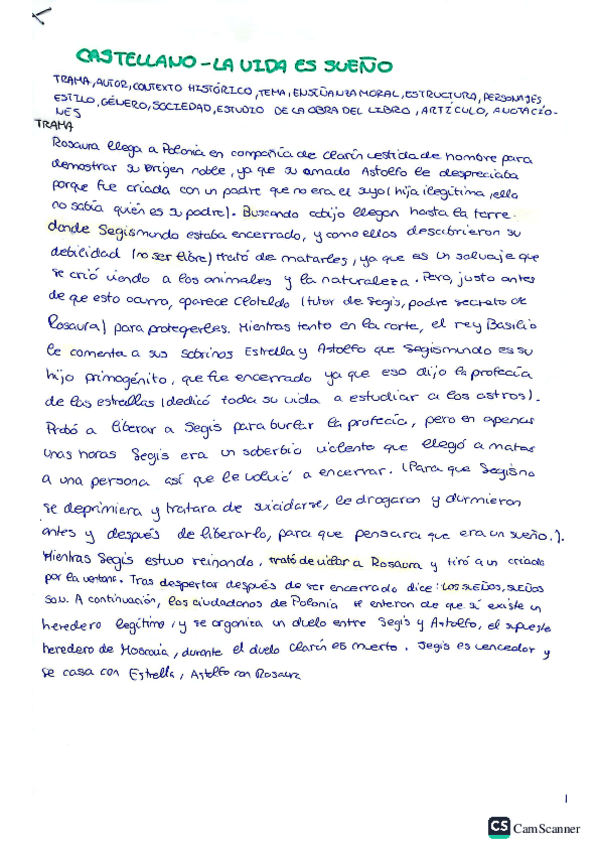 CASTELLANO - LA VIDA ES SUEÑO
TRAMA, AUTOR, CONTEXTO HISTÓRICO, TEMA, ENSEÑANZA MORAL, ESTRUCTURA, PERSONAJES
ESTILO, GÉNERO, SOCIEDAD, ESTUDIO DE LA OBRA DEL LIBRO, ARTÍCULO, ANOTACIO-
NES
TRAMA
Rosaura llega a Polonia en compañía de Clarín vestida de hombre para
demostrar su origen noble, ya que su amado Astolfo le despreciaba
porque fue criada con un padre que no era el suyo (hija ilegítima, ella
no sabía quién es su padre). Buscando cobijo llegan hasta la torre
donde Segismundo estaba encerrado, y como ellos descubrieron su
debilidad (no ser libre) trató de matarles, ya que es un salvaje que
se crió viendo a los animales y la naturaleza. Pero, justo antes
de que esto ocurra, aparece Clotaldo (tutor de Segis, padre secreto de
Rosaura) para protegerles. Mientras tanto en la corte, el rey Basilio
le comenta a sus sobrinos Estrella y Astolfo que Segismundo es su
hijo primogénito, que fue encerrado ya que eso dijo la profecía
de las estrellas (dedicó toda su vida a estudiar a los astros).
Probó a liberar a Segis para burlar la profecía, pero en apenas
unas horas Segis era un soberbio violento que llegó a matar
a una persona así que le volvió a encerrar. (Para que Segis no
se deprimiera y tratara de suicidarse, le drogaron y durmieron
antes y después de liberarlo, para que pensara que era un sueño.).
Mientras Segis estuvo reinando, trató de violar a Rosaura y tiró a un criado
por la ventana. Tras despertar después de ser encerrado dice: LOS SUEÑOS, SUEÑOS
SON. A continuación, los ciudadanos de Polonia se enteran de que sí existe un
heredero legítimo, y se organiza un duelo entre Segis y Astolfo, el supuesto
heredero de Moscovia, durante el duelo Clarín es muerto. Segis es vencedor y
se casa con Estrella, Astolfo con Rosaura
1
CS CamScanner